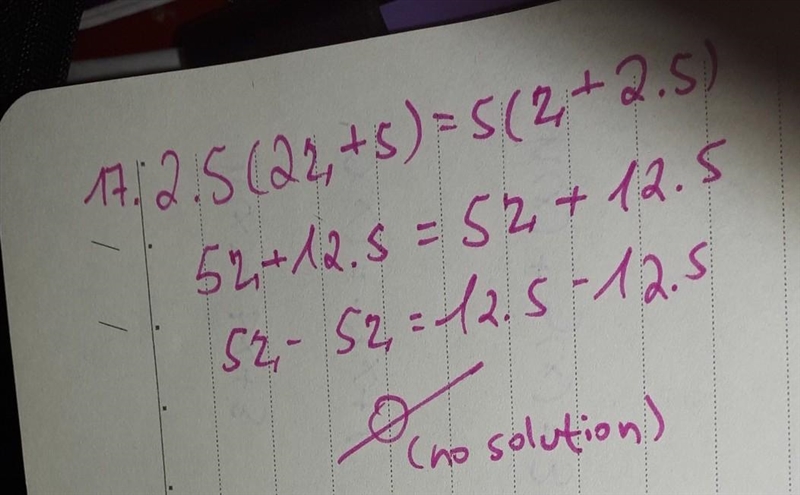 17. 2.5(2z+5)=5(z+2.5)
5z+12.5=5z+12.5
5z-5z=12.5-12.5
∅ (no solution)